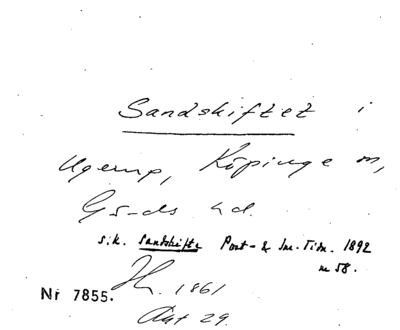 Sandskiftet i
Ugerup, Köpinge m,
Gs-ds hd.
s.k. Sandskifte Post- & In. Tidn. 1892
n 58.
1861
Nr 7855.
Akt 29.